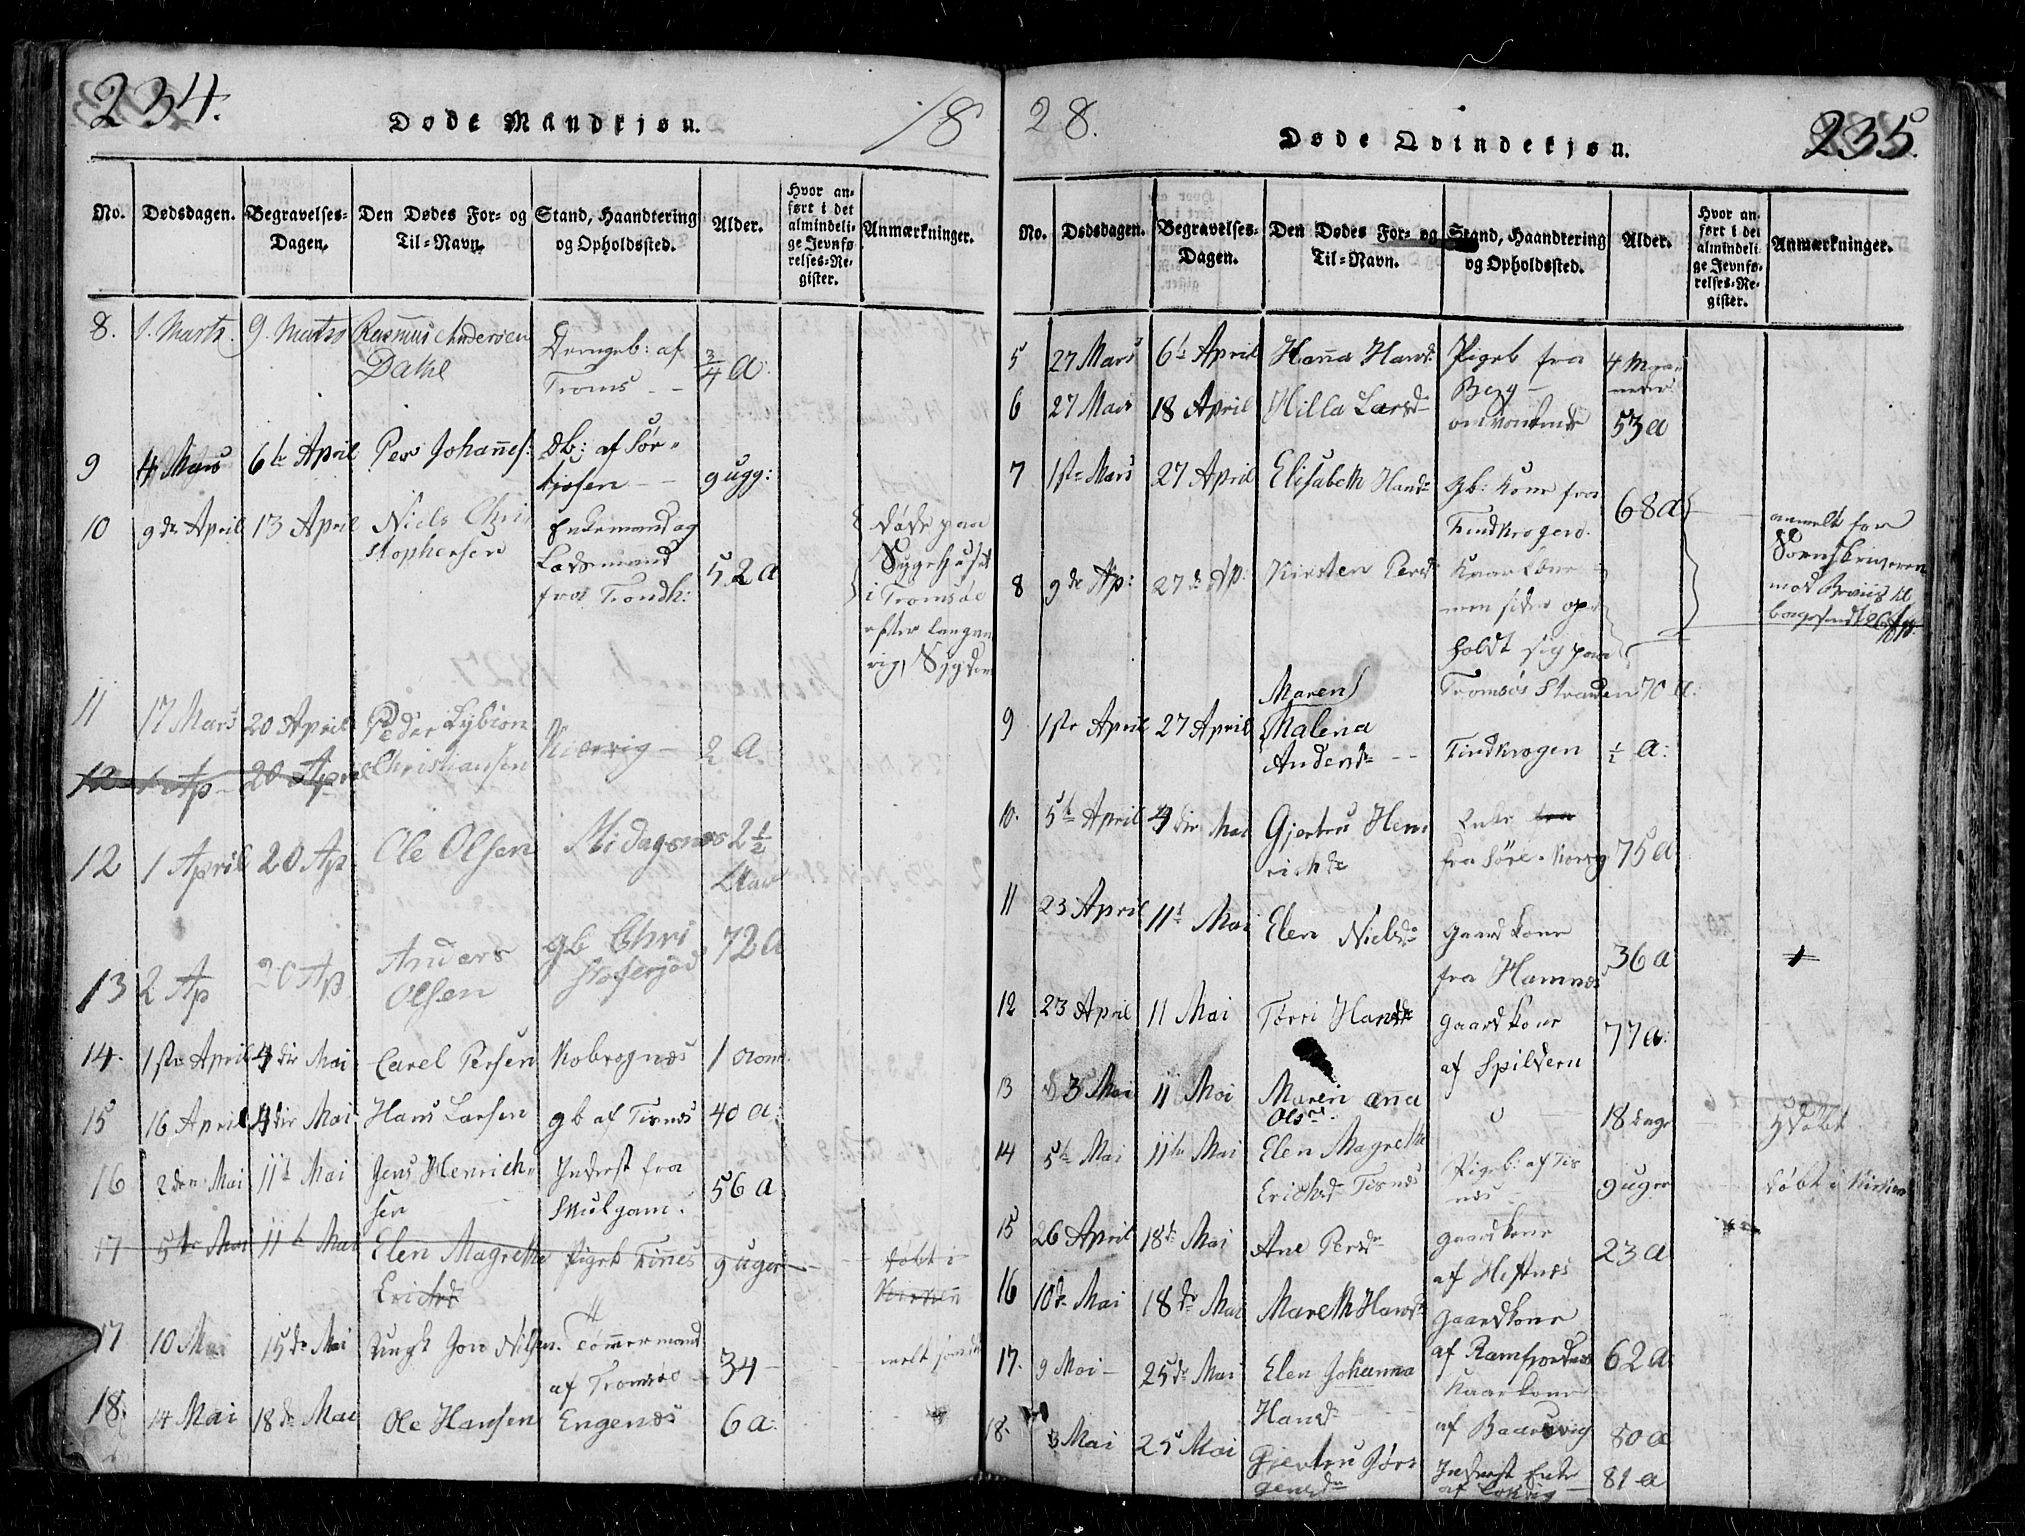 234.
Døde Mandkjøn.
18
No.
Dødsdagen.
Begravelses-
Dagen.
Den Dødes For- og
Til-Navn.
Stand, Haandtering
og Opholdssted.
Alder.
Hvor an-
ført i det
almindeli-
ge Jevnfø
relses-Re-
gister.
Anmærkninger.
8. 1. Marts. 9. Marts Rasmus Andersen
Dahl
Drengeb: af
Troms
3/4 a:
9 4 Mars 6te April Per Johannes: Db: af Sør-
9 ugg:
10 9de April 13 April Niels Chri
stophersen
Enkemand og
Losmand
fra Trondh:
52 a
døde paa
Sygehuset
i Tromsøe
efter langva
rig Sygdom
11 17 Mars 20 April Peder Lybion
Christiansen
2 a
12 1 Ap 20 April
12 1 April 20 Ap Ole Olsen Midagsnæs 2 1/2
Aar
13 2 Ap 20 Ap Anders
Olsen
gb Chri
stofersjod
72 a
14. 1ste April 4die Mai Carel Persen Kobrognæs 1
15 16 April 4die Mai Hans Larsen gb af Tisnæs 40 a:
16 2den Mai 11te Mai Jens Henrich-
sen
Inderst fra
Skulgam.
56 a
17 5te Mai 11te Mai Elen Magrethe
Erichsd
Pigeb Tisnes 9 uger
døbt i
Kirken
17 10 Mai 15de Mai Ungk Jon Nilsen. Tømmermand
af Tromsøe
34
18. 14 Mai 18de Mai Ole Hansen Engenæs 6 a:
28.
Døde Qvindekjøn.
235.
No.
Dødsdagen.
Begravelses-
Dagen.
Den Dødes For- og
Til-Navn.
Stand, Haandtering
og Opholdssted.
Alder.
Hvor an-
ført i det
almindeli-
ge Jevnfø-
relses-Re-
gister.
Anmærkninger.
5 27 Mars 6te April Hanna Hansd: Pigeb fra
Berg
4 Maa
neder
6 27 Mars 18 April Hilla Larsd 53 a
7 1ste Mars 27 April Elisabeth Hansd gb: Kone fra
Tindkrogen.
68 a
anmelt for
Sorenskriveren
8 9de Ap: 27de Ap: Kirsten Persd Kaarkone
opp
holdt sig paa
Tromsøs Stranden 70 a:
9 1ste April 27 April
Maren
Malena
Andersd
Tindkrogen 1/2 a:
10. 5te April 4die Mai Gjertru Hen
richsd
Enke fra
fra Søre-Norvig
75 a
11 23 April 11te Mai Elen Nielsd gaardkone
fra Hamnæs
36 a
12 23 April 11 Mai Torri Hansd gaardkone
af Spildern
77 a:
13 d 3 Mai 11 Mai Maren ana
Olsd
18 dage
14 5te Mai 11te Mai Elen Magrethe
Erichsd Tisnæs
Pigeb: af Tis
næs
9 uger døbt i Kirken
15 26 April 18de Mai Ane Persd gaardkone
af Hestnæs
23 a
16 10de Mai 18de Mai Mareth Hansd gaardkone
af Ramfjordnæs
62 a:
17. 9 Mai 25de Mai Elen Johanna
Hansd
Kaarkone
80 a
18. 3 Mai 25 Mai Gjertru Jør
gensd
Inderst Enke
81 a